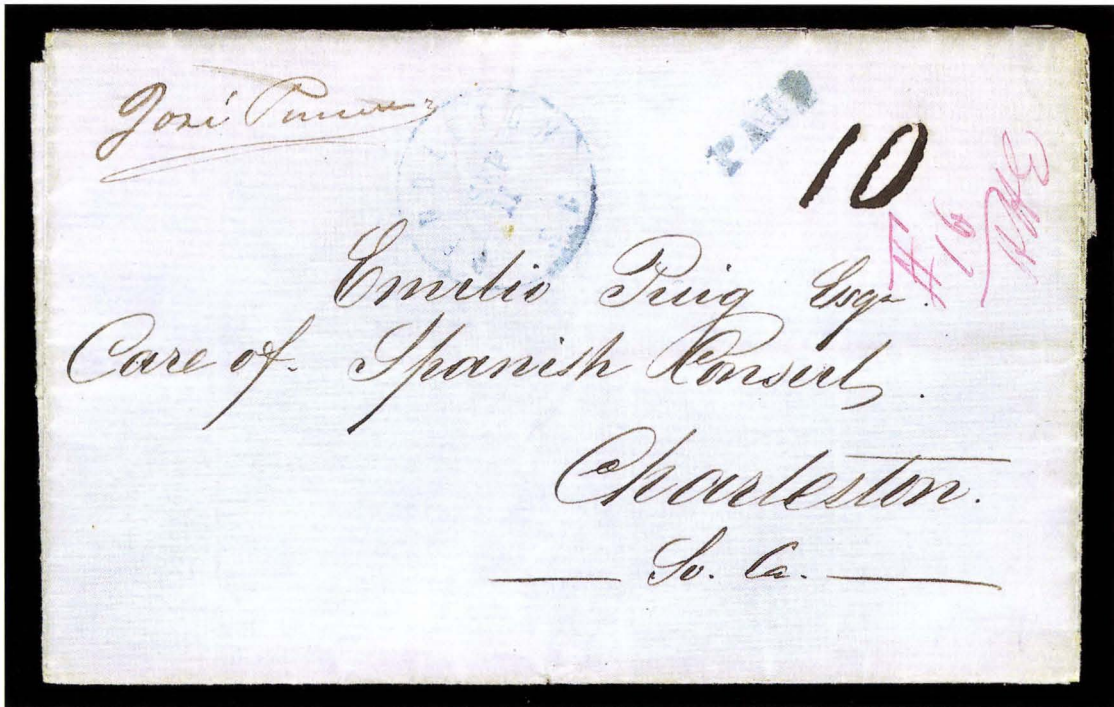 José
PAID
10
#16
Emilio Puig Esqr.
Care of. Spanish Consul.
Charleston.
So. Ca.